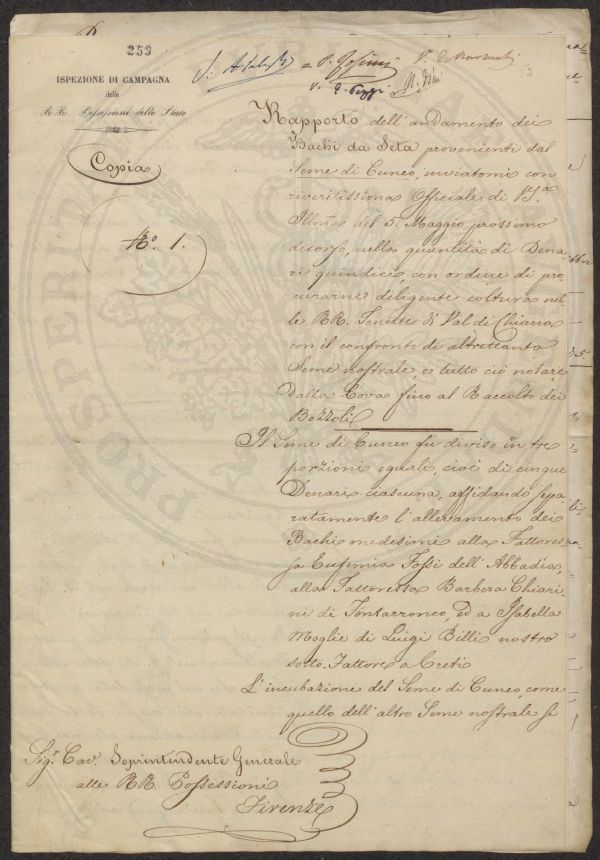 253
ISPEZIONE DI CAMPAGNA
delle
RR. Possessioni dello Stato
Copia
N.° 1.
Rapporto dell'andamento dei
Bachi da Seta provenienti dal
Seme di Cuneo, inviatomi con
riveritissima Officiale di V.S.
Illma del 3. Maggio prossimo
decorso, nella quantità di Dena-
ri quindici, con ordine di pro-
curarne diligente coltura nel-
le RR. Tenute di Val di Chiana
con il confronto di altrettanto
Seme nostrale, e tutto ciò notare
dalla Cova fino al Raccolto dei
Bozzoli
Il Seme di Cuneo fu diviso in tre
porzioni eguali, cioè di cinque
Denari ciascuna, affidando sepa-
ratamente l'allevamento dei
Bachi medesimi alla Fattores-
sa Eufemia Fossi dell'Abbadia,
alla Fattoressa Barbera Chiari-
ni di Fontarronco, ed a Isabella
Moglie di Luigi Billi nostro
sotto-Fattore a Creti
L'incubazione del Seme di Cuneo, come
quello dell'altro Seme nostrale si
Sig.r Cav.r Soprintendente Generale
alle RR. Possessioni
Firenze